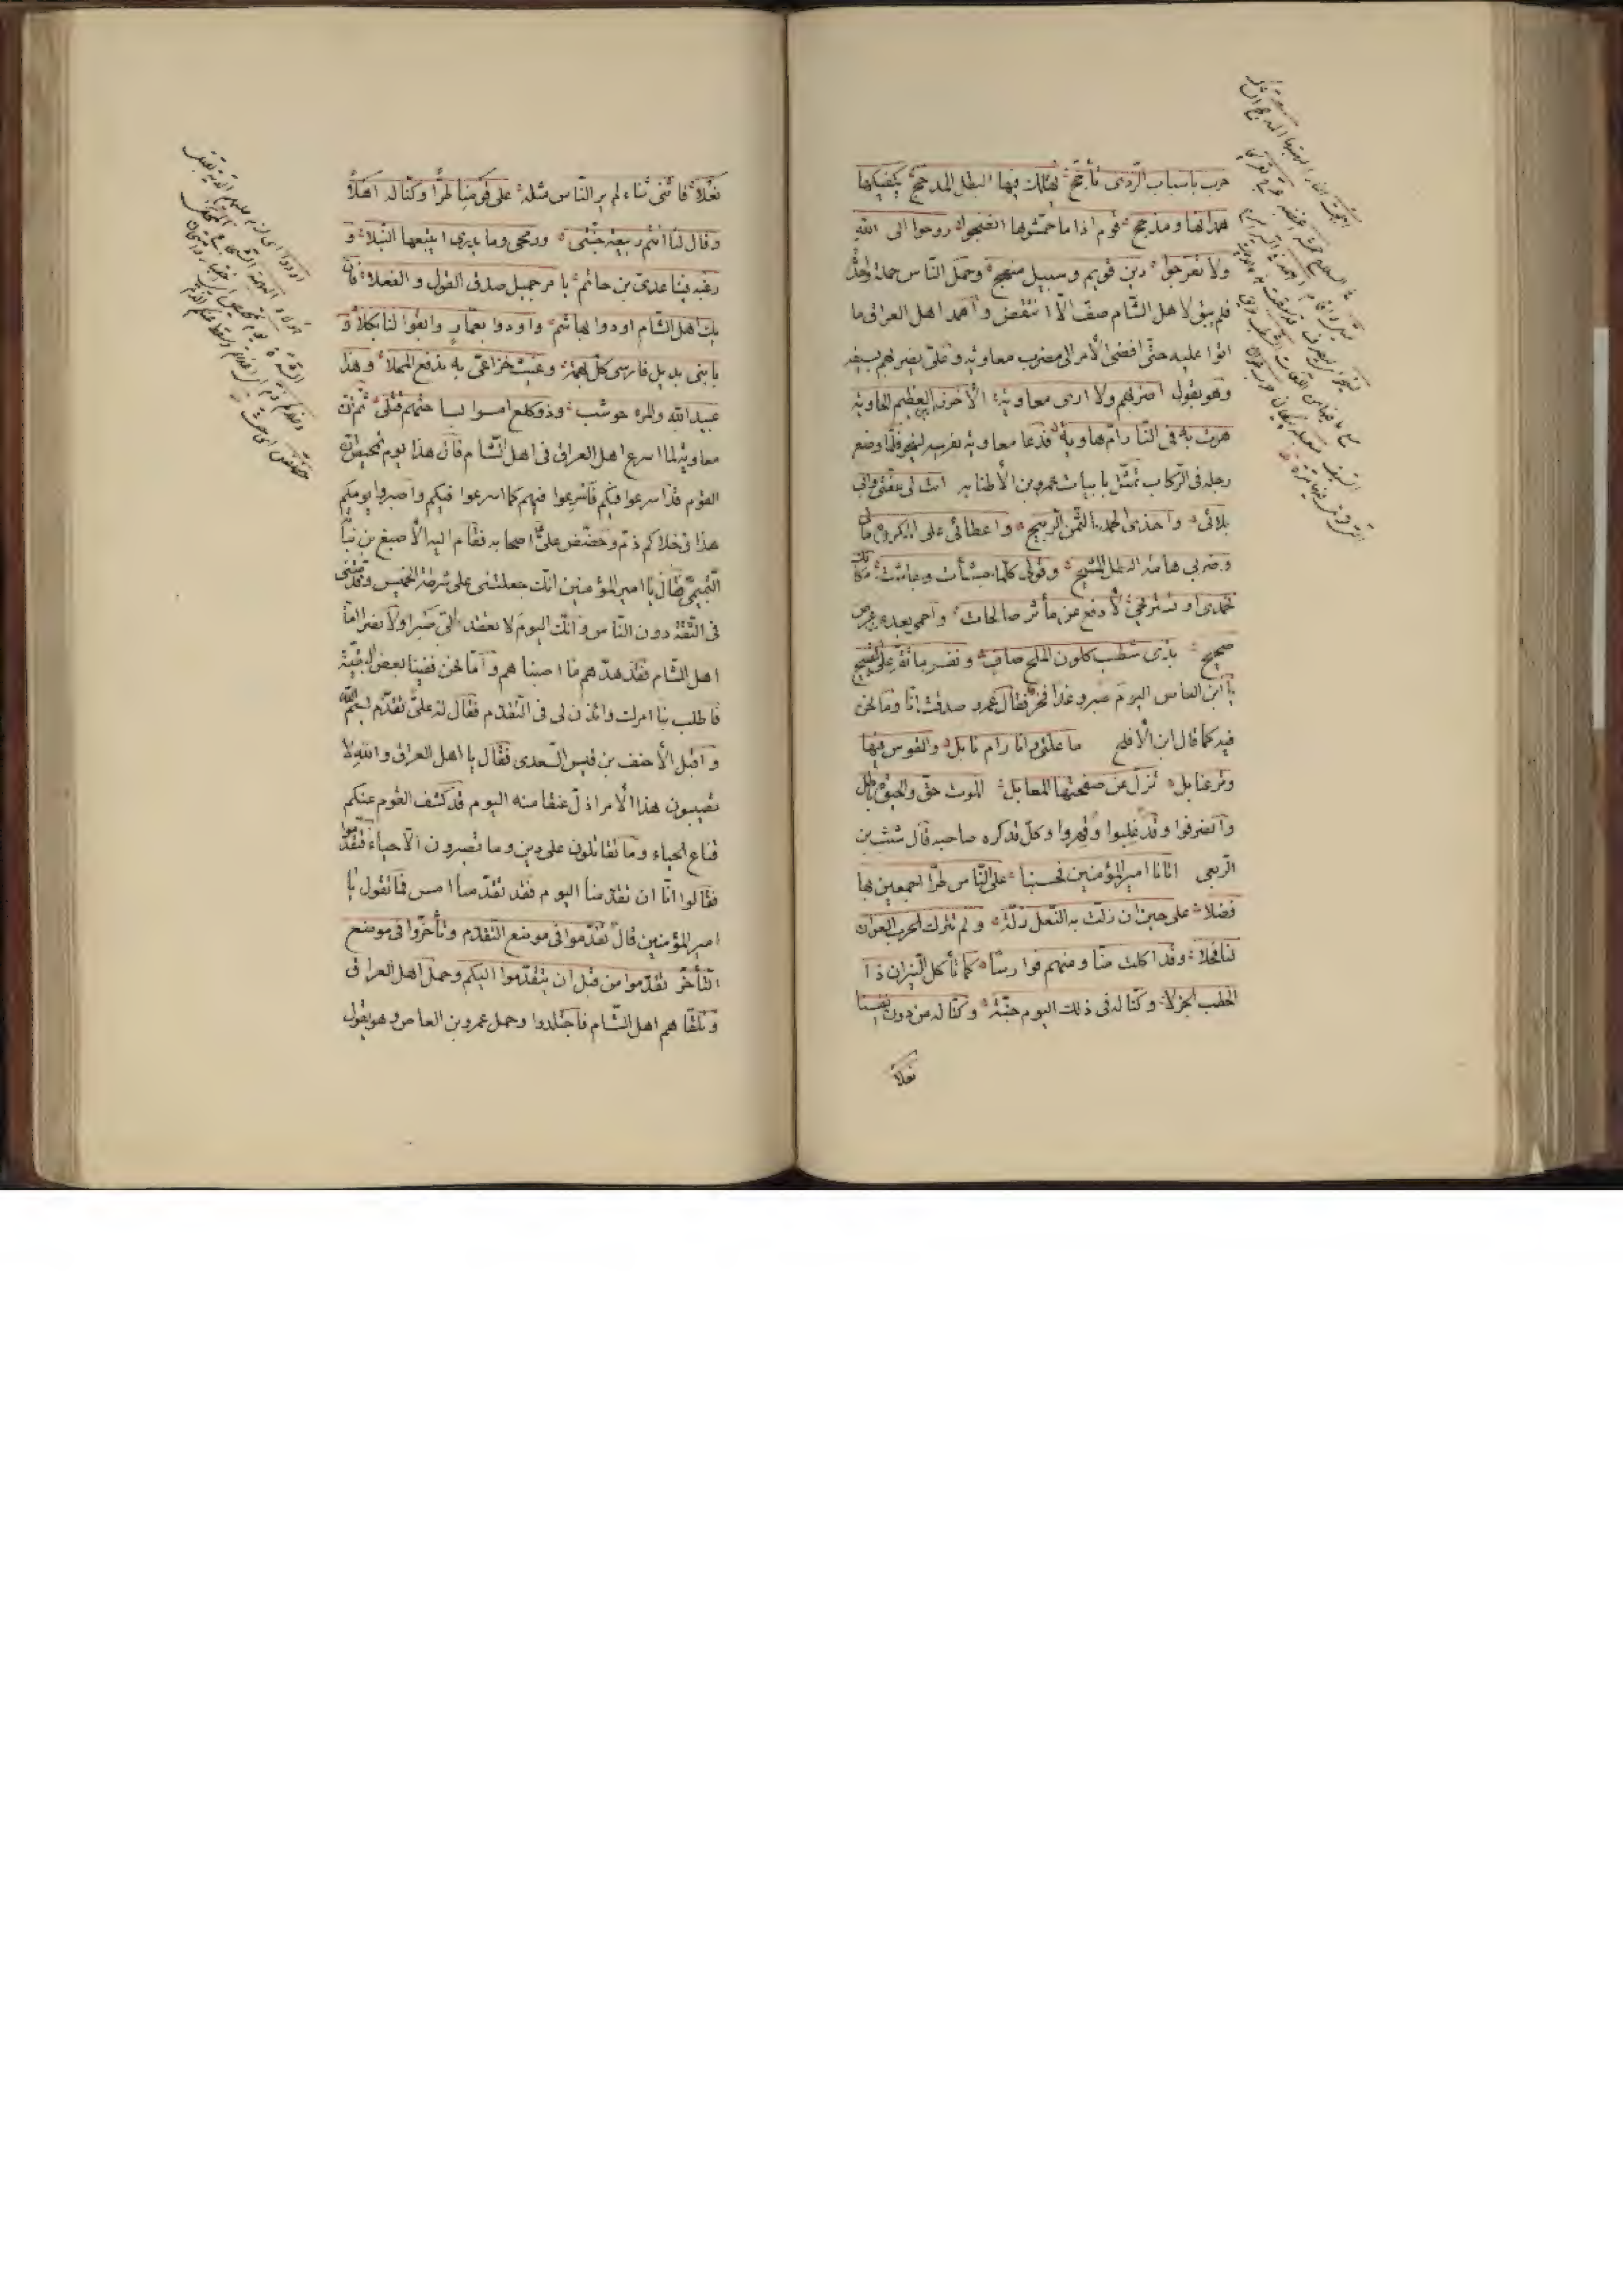 حرب باسباب الردى تأجج يهلك فيها البطل المدجج يكفيكها
همدانها ومذحج قوم اذا ما حمشوها انضجوا روحوا الى الله
ولا تعرجوا دين قويم وسبيل منهج وحمل الناس حملة واحدة
فلم يبق لاهل الشام صف الا انتقض وأهمد اهل العراق ما
اتوا عليه حتى افضى الأمر الى مضرب معاوية وعلى يضربهم بسيفه
وهو يقول اضربهم ولا ارى معاوية الأخزر العظيم الحاوية
هوت به فى النار ام هاوية فدعا معاوية بفرسه لينجو فلما وضع
رجله فى الركاب تمثل بابيات عمرو بن الأطنابه ابت لى عفتى وابى
بلائى واخذى الحمد بالثمن الربيح واعطائى على المكروه مالى
وضربى هامة البطل المشيح وقولى كلما جشأت وجاشت مكانك
تحمدى او تستريحى لأدفع عن مأثر صالحات واحمى بعد عن عرض
صحيح بذى شطب كلون الملح صاف ونفس ما تقر على القبيح
يا ابن العاص اليوم صبر وغدا فخر فقال عمرو صدقت انا وما نحن
فيه كما قال ابن الأفلح ما علتى وانا رام نابل والقوس فيها
وتر عنابل تزل عن صفحتها المعابل الموت حق والحيوة باطل
وانصرفوا وقد غلبوا وقهروا وكل قد كره صاحبه قال شبث بن
الربعى اتانا امير المؤمنين فحسبنا على الناس طرا اجمعين بها
فضلا على حين ان زلت به النعل زلة ولم تترك الحرب العوان
لنا فحلا وقد اكلت منا ومنهم فوارسا كما تأكل النيران ذا
الحطب الجزلا وكنا له فى ذلك اليوم جنة وكنا له من دون انفسنا
نعلا
نعلا فاثنى ثناء لم ير الناس مثله على قومنا طرا وكنا له اهلا
وقال لنا انتم ربيعة جنتى ورمحى وما يدرى ايتبعها النبلا و
رغبه فينا عدى بن حاتم بامر جميل صدق القول والفعلا فان
يك اهل الشام اودوا بهاشم واودوا بعمار وابقوا لنا ثكلا و
بابنى بديل فارسى كل بهمة وغيث خزاعى به ندفع المحلا وهذا
عبيد الله والمرء حوشب وذو كلع امسوا بساحتهم قتلى ثم ان
معاوية لما اسرع اهل العراق فى اهل الشام قال هذا يوم تمحيص ان
القوم قد اسرعوا فيكم فأسرعوا فيهم كما اسرعوا فيكم واصبروا يومكم
هذا وخلاكم ذم وحضض على اصحابه فقام اليه الأصبغ بن نباتة
التميمى فقال يا امير المؤمنين انك جعلتنى على شرطة الخميس وقدمتنى
فى الثقة دون الناس وانك اليوم لا تفقد لى صبرا ولا نصرا اما
اهل الشام فقد هدهم ما اصبنا هم واما نحن ففينا بعض البقية
فاطلب بنا امرك وائذن لى فى التقدم فقال له على تقدم بسم الله
واقبل الأحنف بن قيس السعدى فقال يا اهل العراق والله لا
تصيبون هذا الأمر اذل عنقا منه اليوم قد كشف القوم عنكم
قناع الحياء وما تقاتلون على دين وما تصبرون الا حياء فتقدموا
فقالوا انا ان تقدمنا اليوم فقد تقدمنا امس فما تقول يا
امير المؤمنين قال تقدموا فى موضع التقدم وتأخروا فى موضع
التأخر تقدموا من قبل ان يتقدموا اليكم وحمل اهل العراق
وتلقاهم اهل الشام فاجتلدوا وحمل عمرو بن العاص وهو يقول